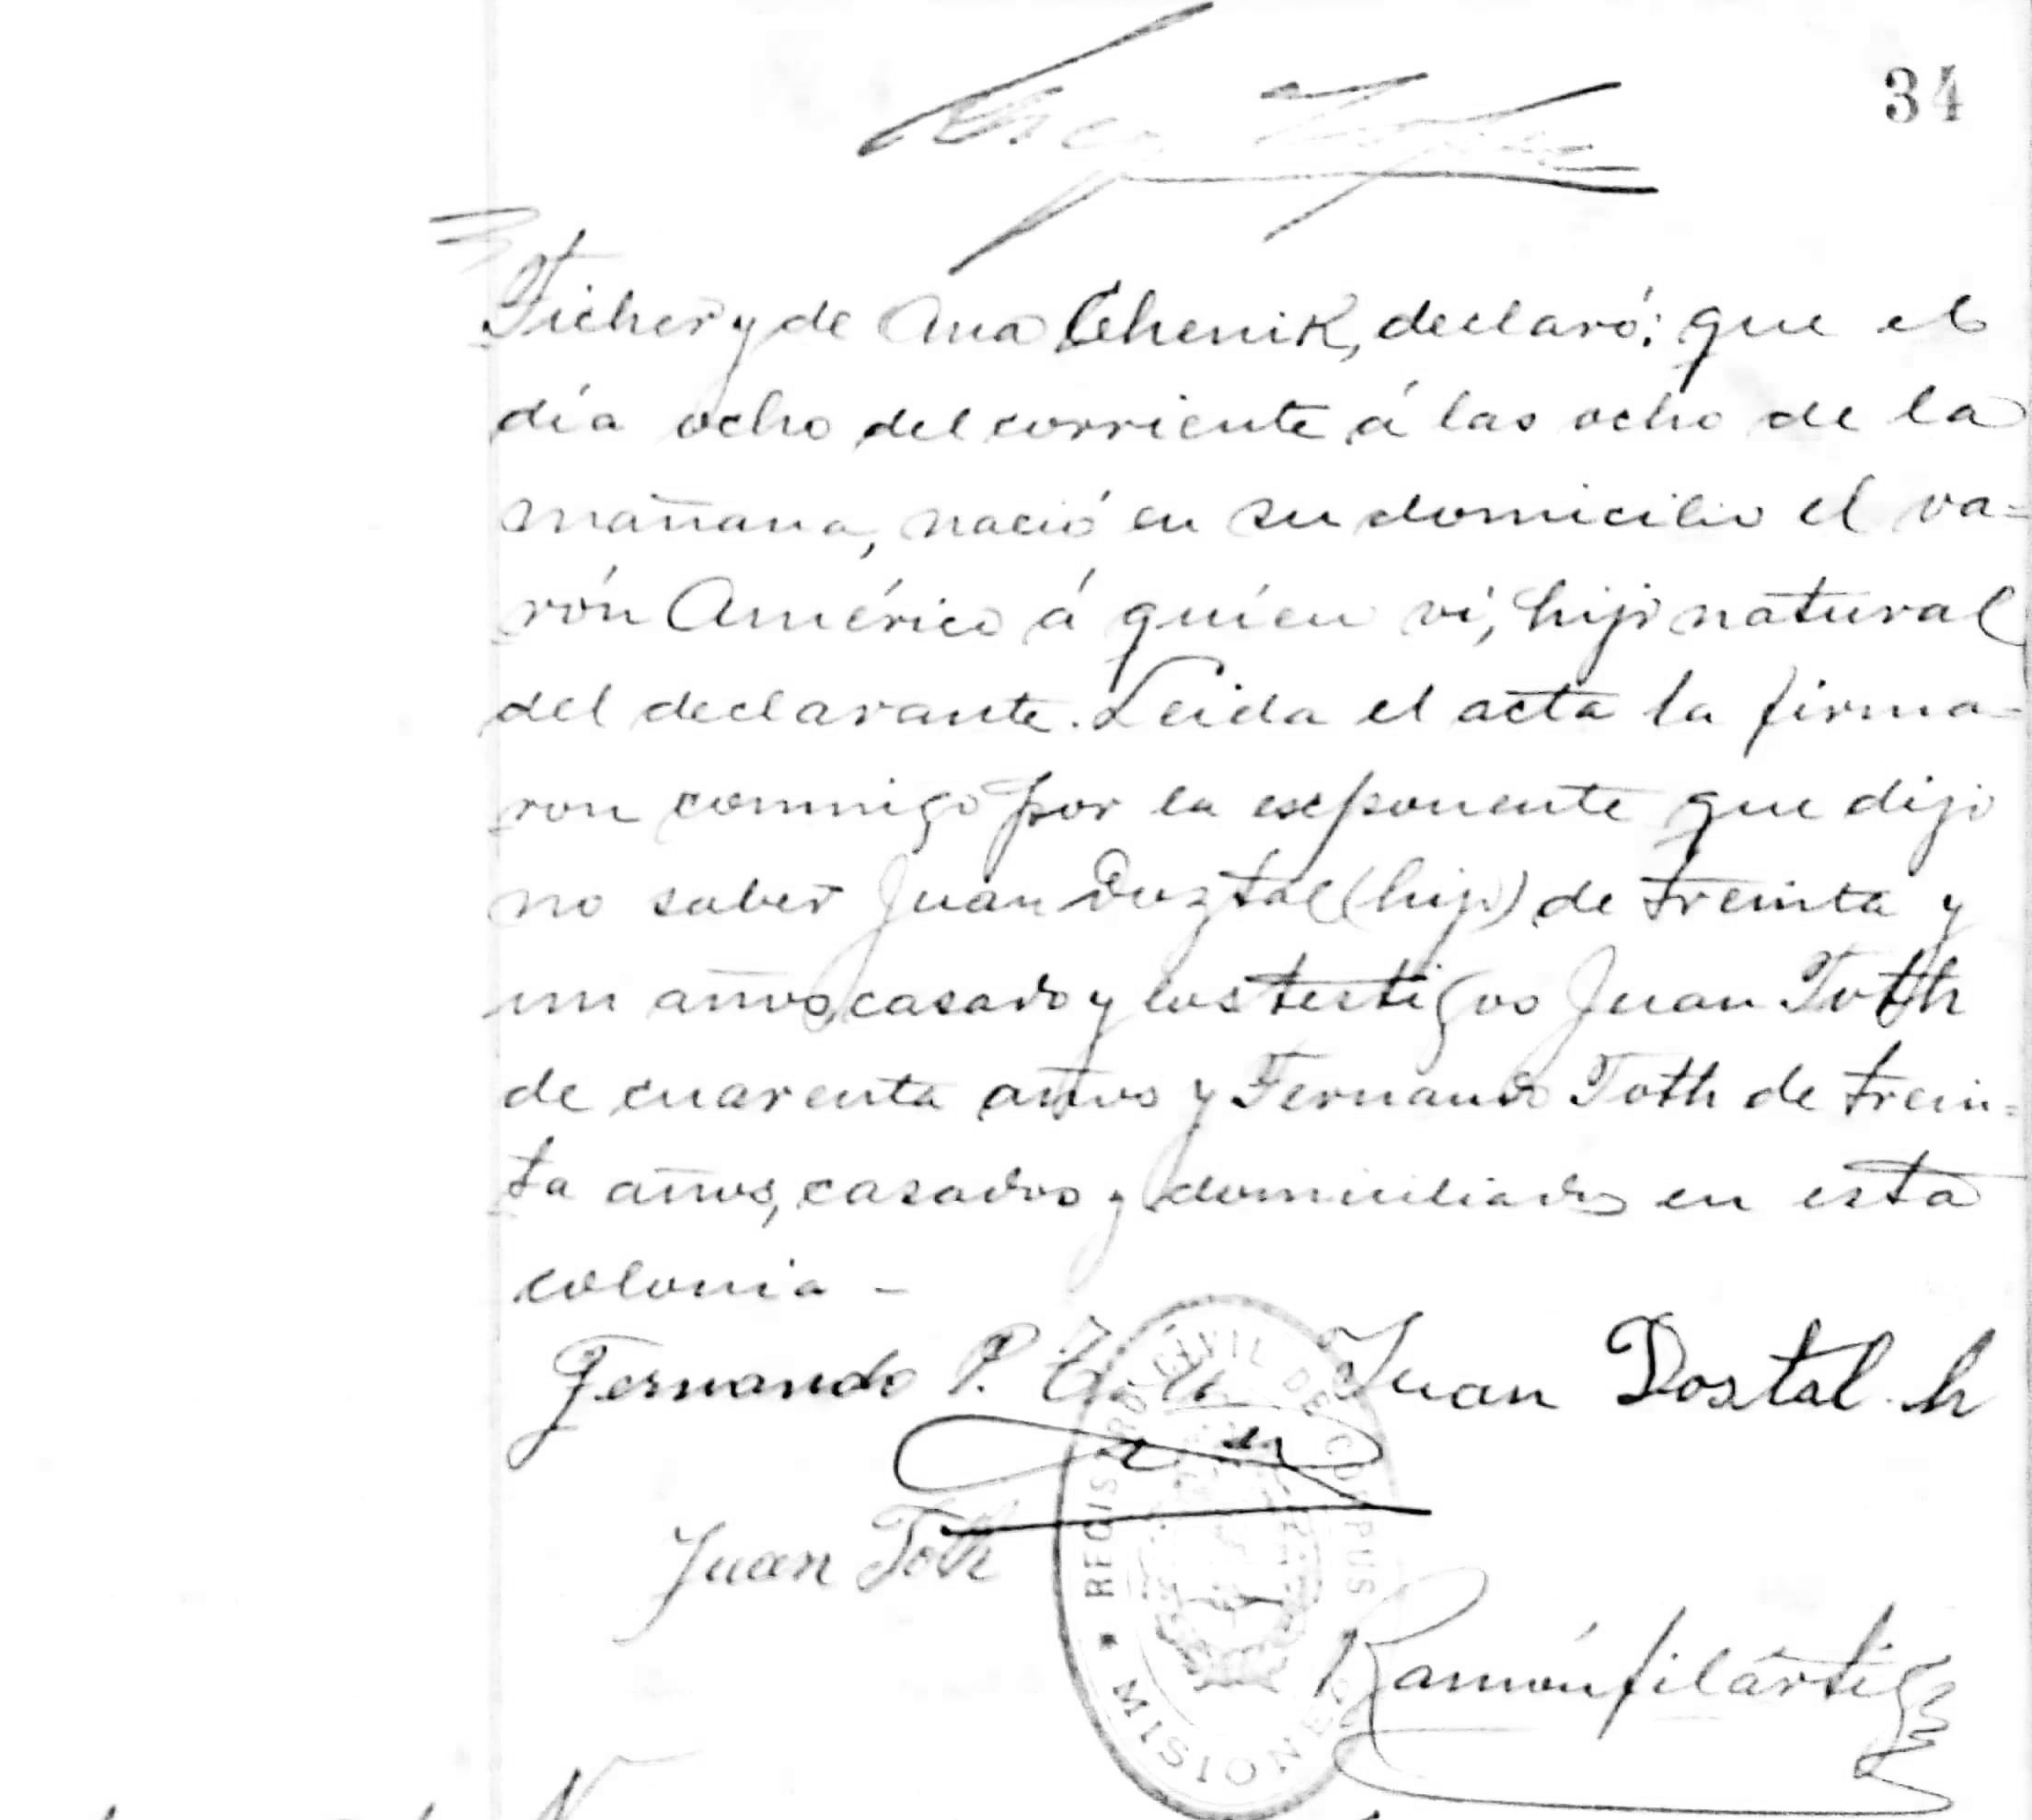 34
Ficher y de Ana Chenik, declaró; que el
día ocho del corriente á las ocho de la
mañana, nació en su domicilio el va=
rón Américo á quíen ví, hijo natural
del declarante. Leida el acta la firma=
ron conmigo por la exponente que dijo
no saber Juan Doztal (hijo) de treinta y
un años, casado y los testigos Juan Toth
de cuarenta años y Fernando Toth de trein=
ta años, casados y domiciliados en esta
colonia -
Fernando P. Juan Dostal h
Juan Toth
REGISTRO CIVIL DE CORPUS
Ramón filártiga
★ MISIONES